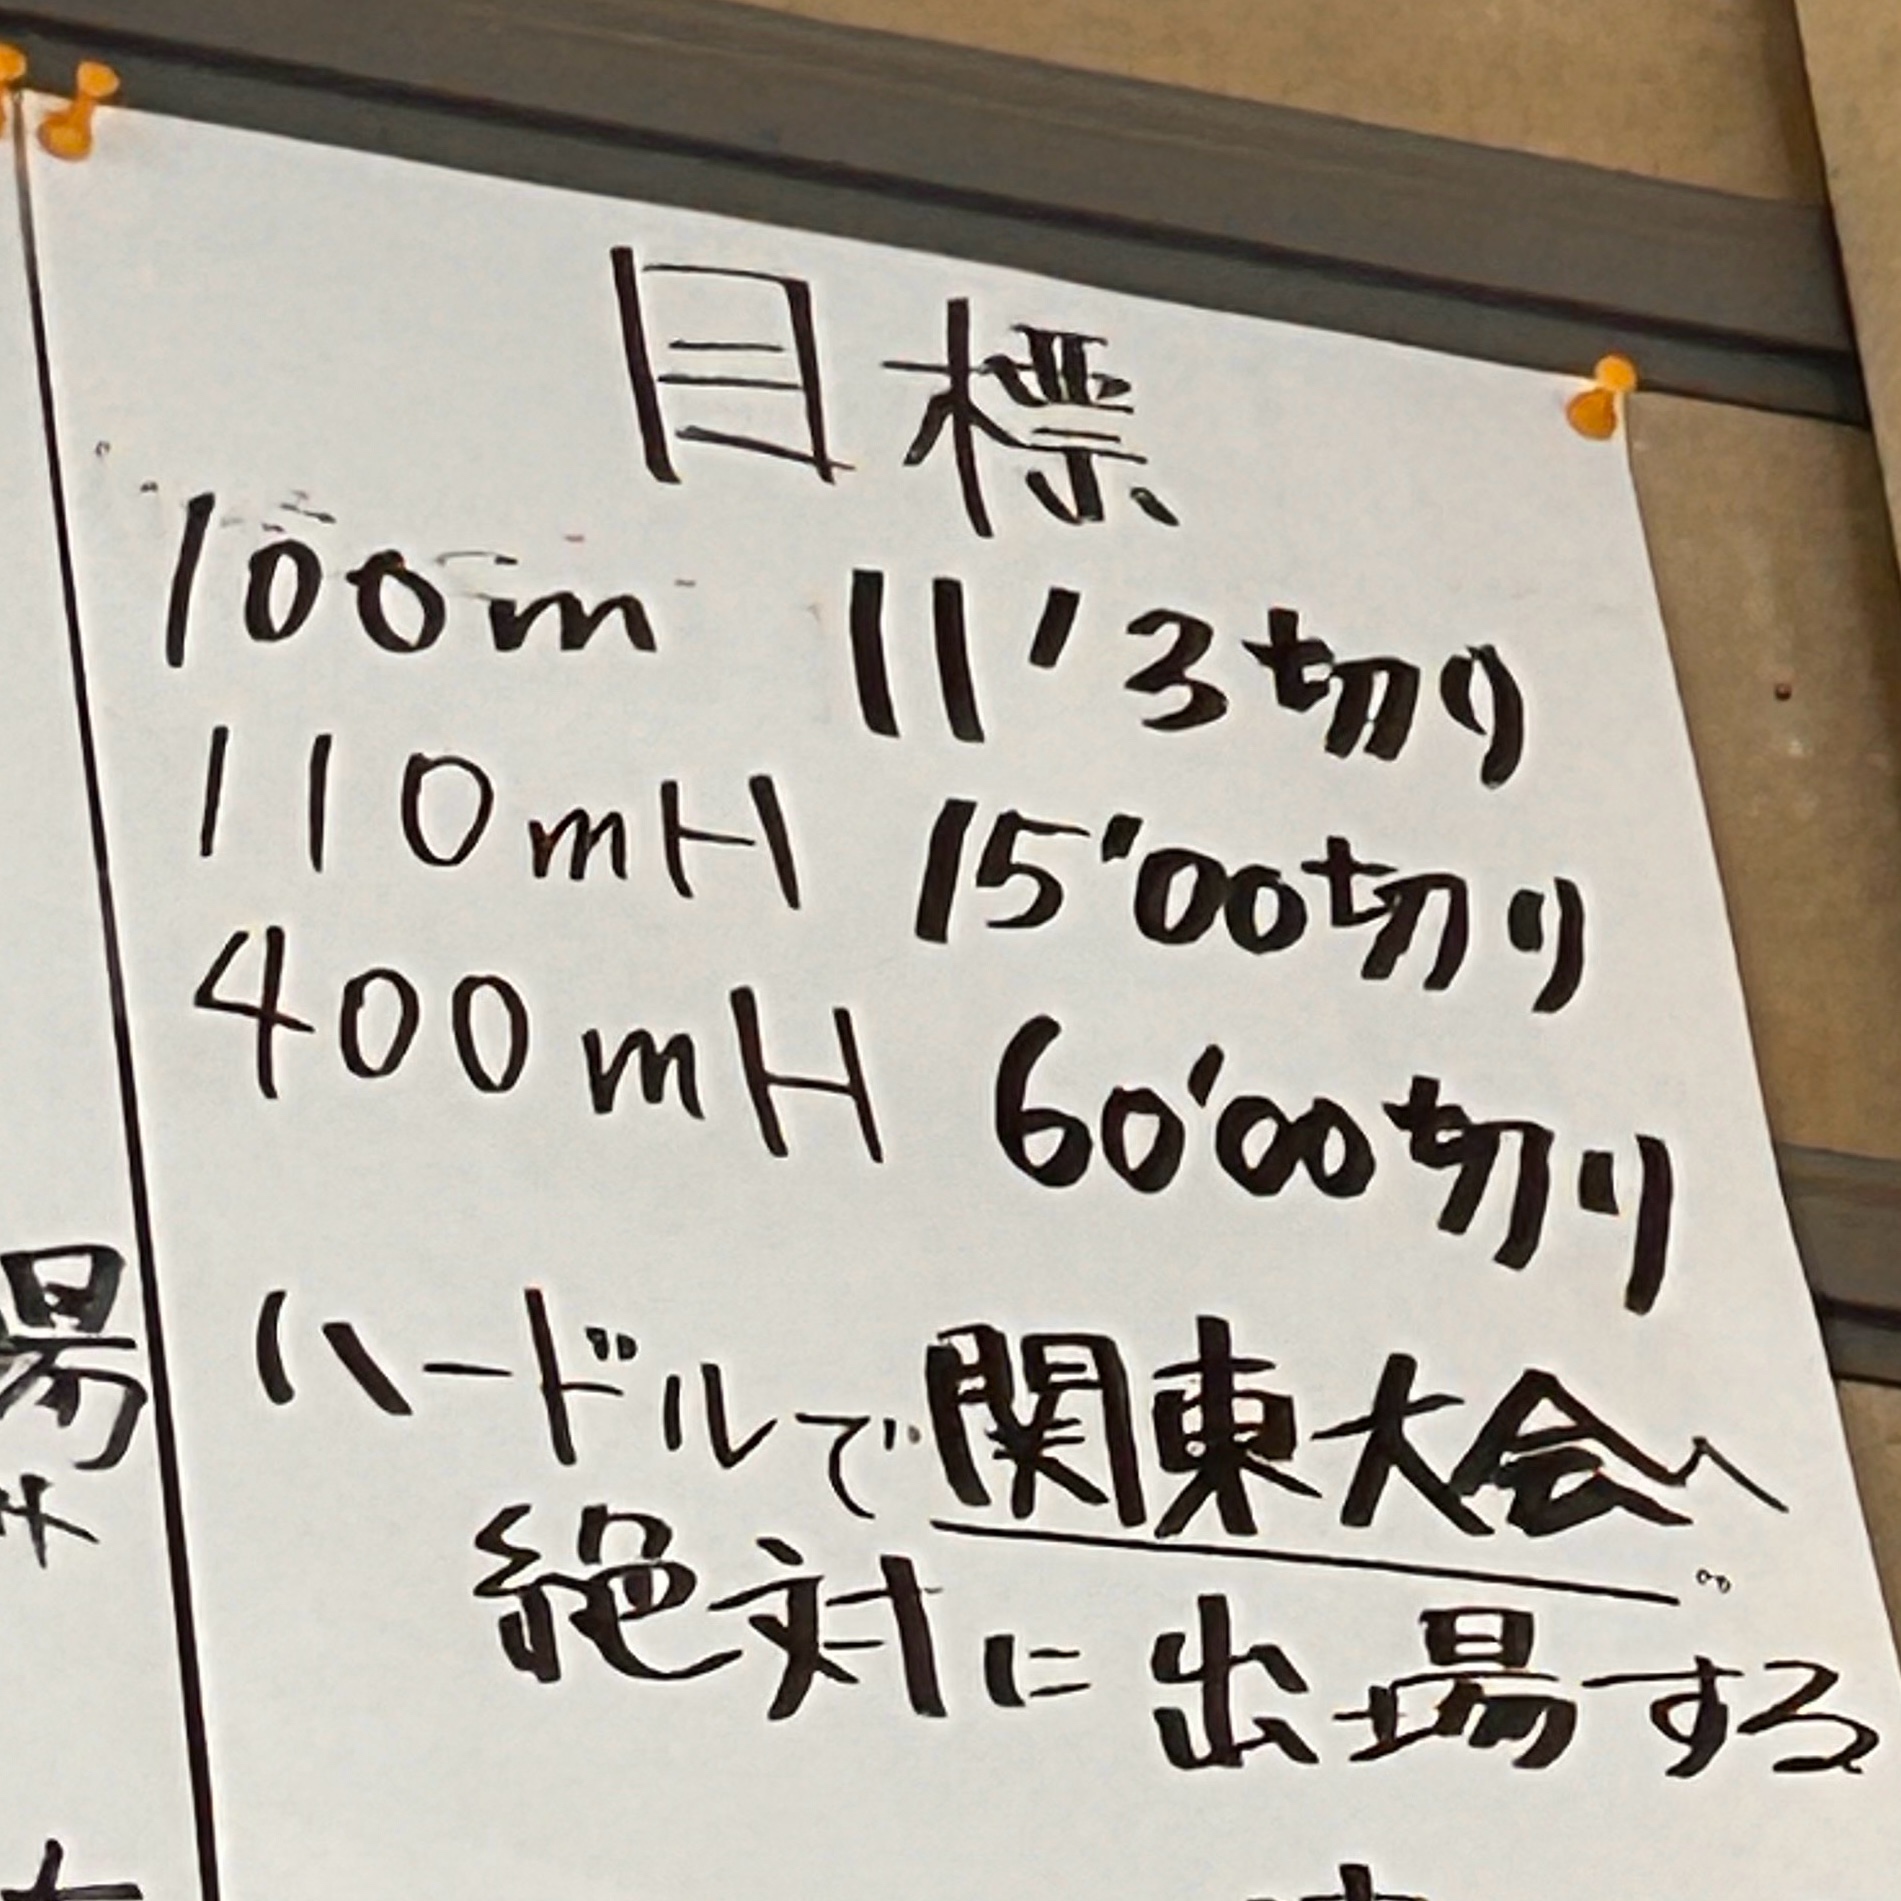 目標
100m 11'3切り
110mH 15'00切り
400mH 60'00切り
ハードルで関東大会へ
絶対に出場する
場